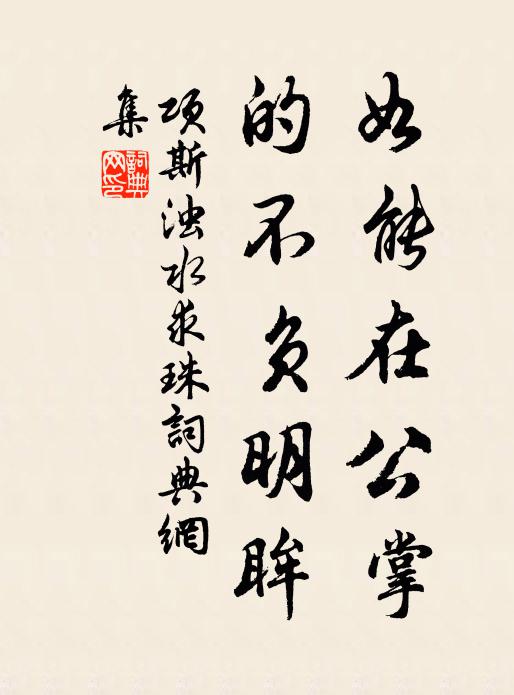 如能在公掌
的不负明眸
项斯浊水求珠詞典網
集
詞典
网印